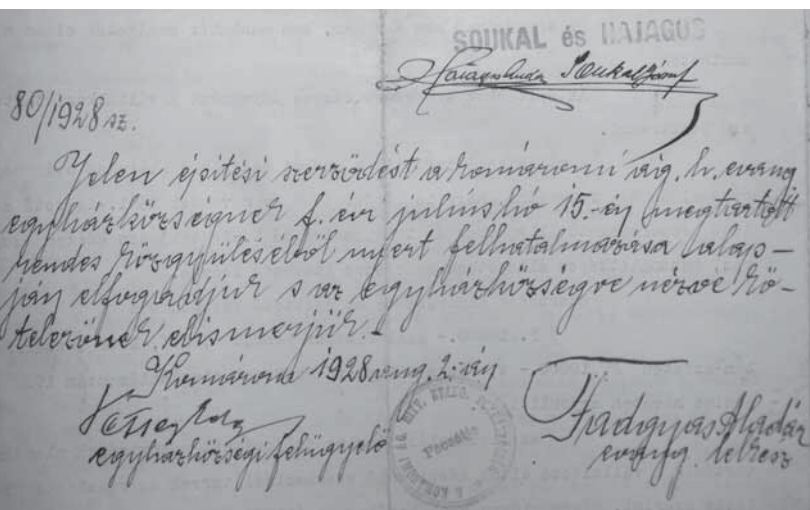 SOUKAL és HAJAGOS
Soukal József
80/1928 sz.
Jelen épitési szerződést a komáromi ág. h. evang
egyházközségnek f. évi július hó 15.-én megtartott
rendes közgyüléséből nyert felhatalmazása alap-
ján elfogadjuk s az egyházközségre nézve kö-
telezőnek elismerjük.-
Komárom 1928 aug. 2.-án
egyházközségi felügyelő
Fadgyas Aladár
evang. lelkész